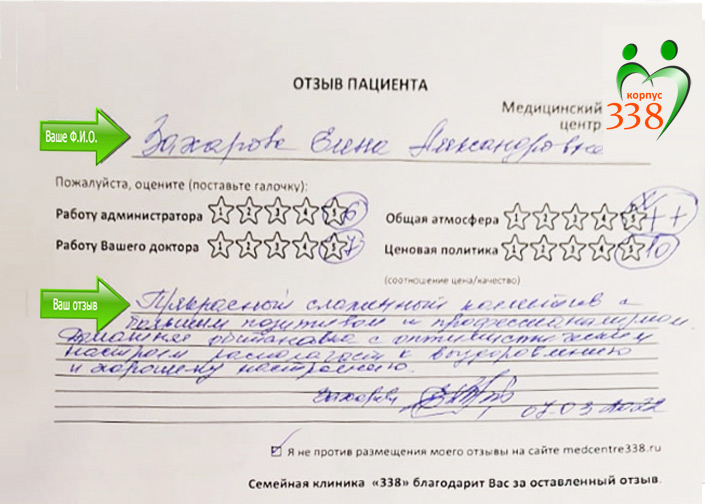 ОТЗЫВ ПАЦИЕНТА
корпус
Медицинский
центр 338
Ваше Ф.И.О.
Захарова Елена Александровна
Пожалуйста, оцените (поставьте галочку):
Работу администратора 1 2 3 4 5 6
Общая атмосфера 1 2 3 4 5 ++
Работу Вашего доктора 1 2 3 4 5 7
Ценовая политика 1 2 3 4 5 10
(соотношение цена/качество)
Ваш отзыв
Прекрасный слаженный коллектив с
большим позитивом и профессионализмом.
Домашняя обстановка с оптимистическим
настроем располагает к выздоровлению
и хорошему настроению.
Захарова 07.03.2022
Я не против размещения моего отзывы на сайте medcentre338.ru
Семейная клиника «338» благодарит Вас за оставленный отзыв.